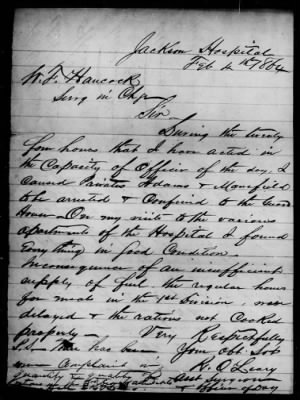 Jackson Hospital
Feb 4th 1864
W. F. Hancock
Surg in Chg
Sir
During the twenty
four houres that I have acted in
the Capacity of Officer of the day, I
caused Privates Adams & Mansfield
to be arrested & Confined to the Guard
House - On my visits to the various
apartments of the Hospital I found
Every thing in Good Condition.
In consequence of an insufficient
supply of fuel, the regular houres
for meals in the 1st Division, were
delayed & the rations not Cooked
properly - Very Respectfully
Your Obt. Svt
There has been
R. O'Leary
Complaint in
quantity & quality of
Asst Surgeon
& Officer of Day